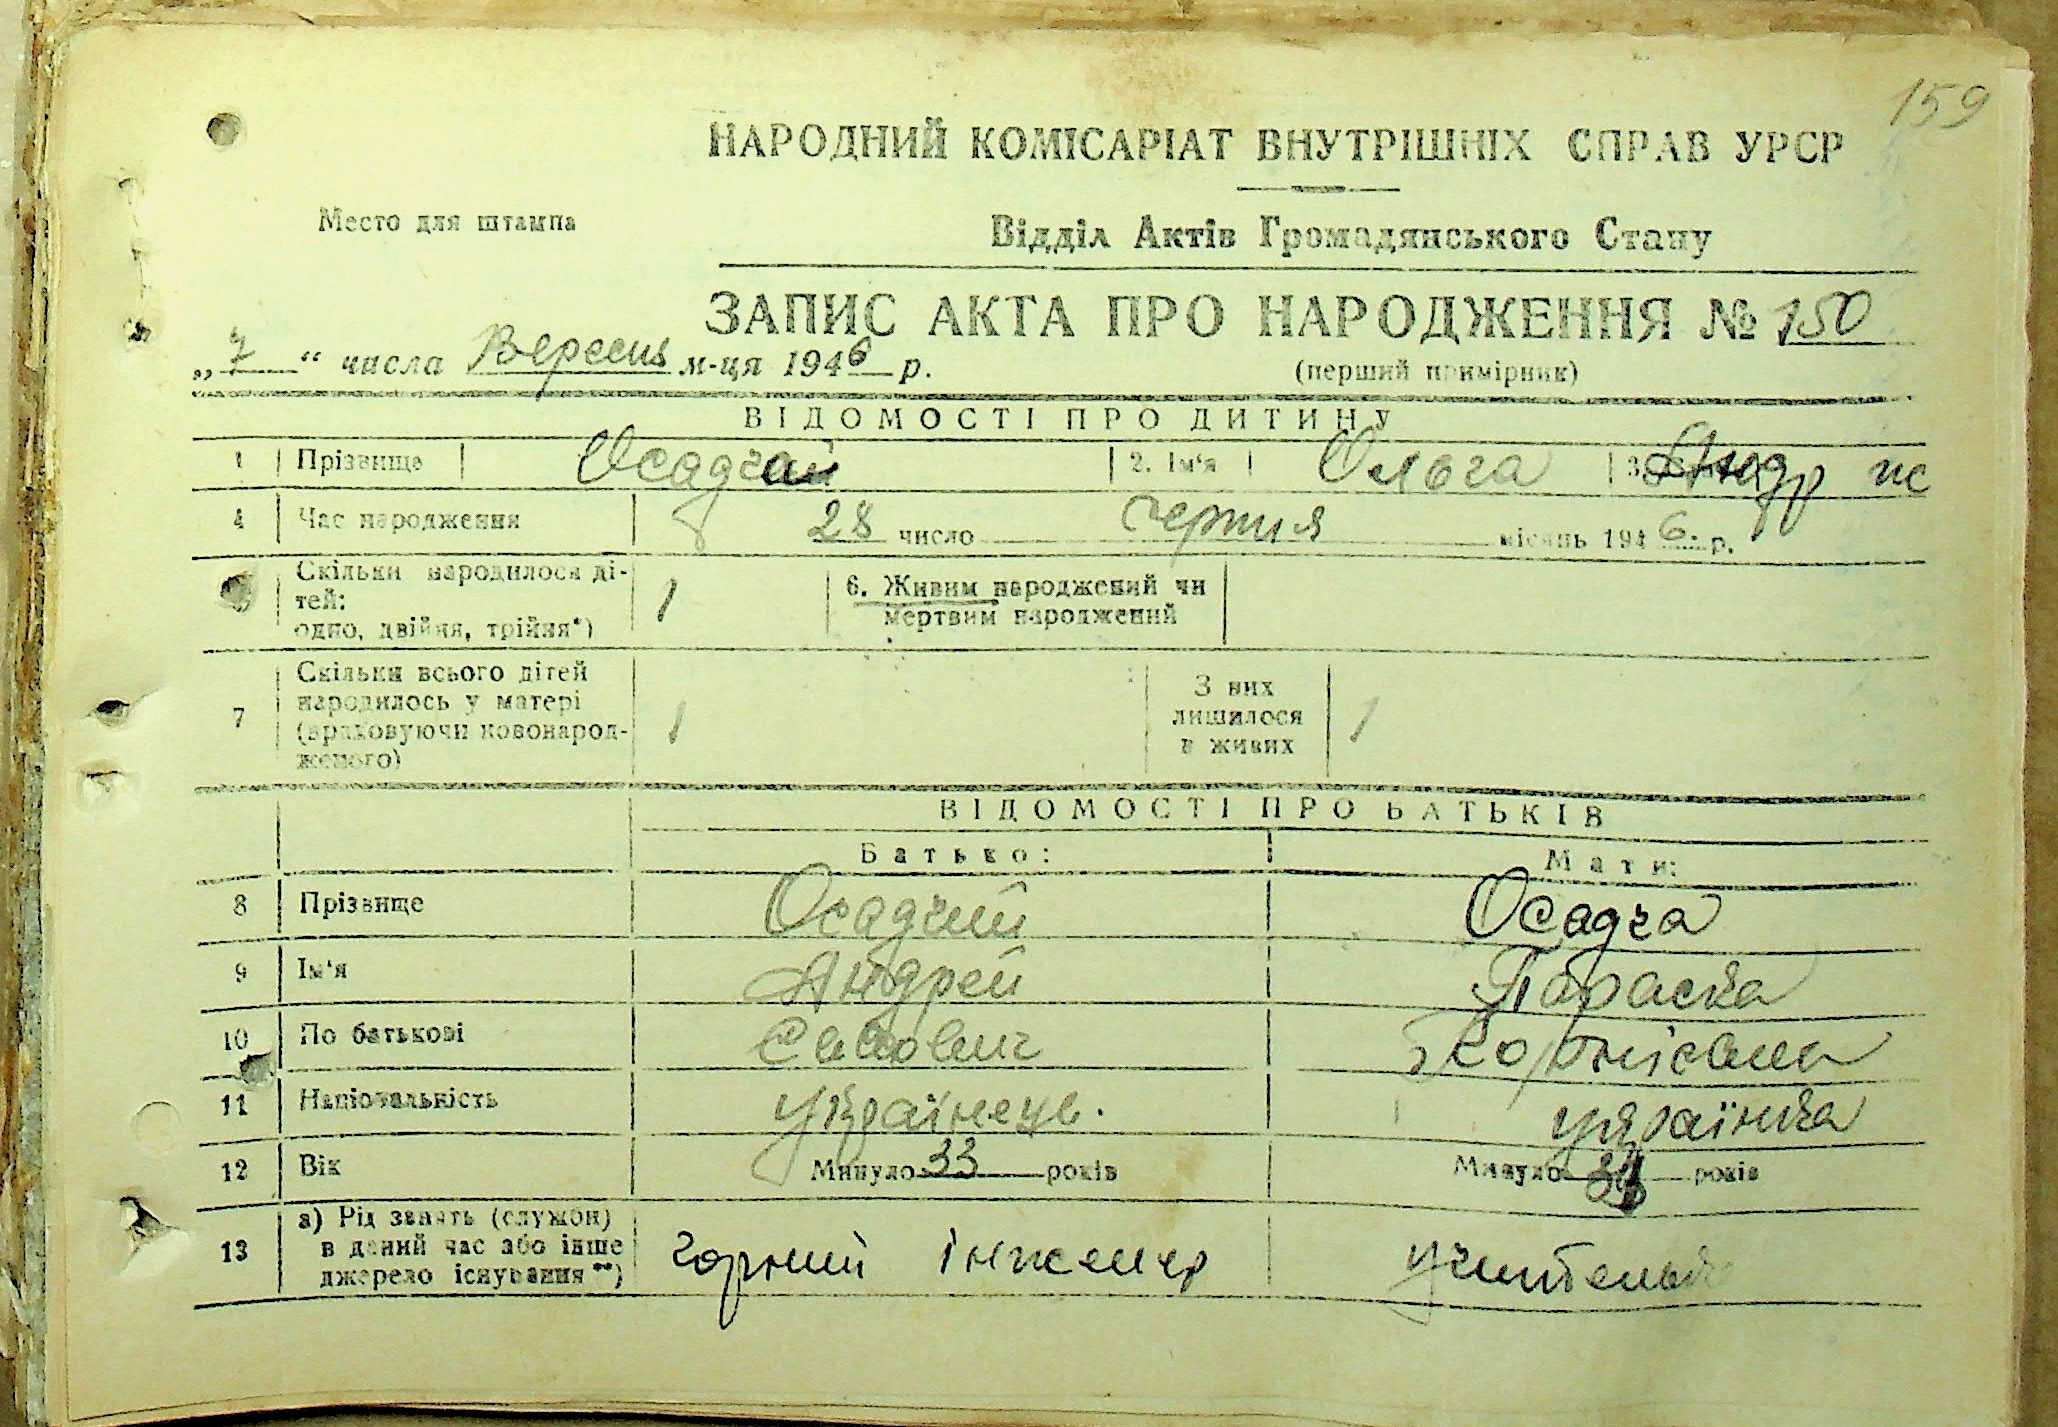 159
НАРОДНИЙ КОМІСАРІАТ ВНУТРІШНІХ СПРАВ УРСР
Место для штампа
Відділ Актів Громадянського Стану
ЗАПИС АКТА ПРО НАРОДЖЕННЯ № 150
„ 7 “ числа Вересень м-ця 1946 р.
(перший примірник)
ВІДОМОСТІ ПРО ДИТИНУ
1 Прізвище Осадчий 2. Ім‘я Ольга 3. Андр
4 Час народження 28 число Червня місяць 1946. р.
Скільки народилося ді-
тей:
одно, двійня, трійня*)
1
6. Живим народжений чи
мертвим народжений
7
Скільки всього дітей
народилось у матері
(враховуючи новонарод-
женого)
1
З них
лишилося
в живих
1
ВІДОМОСТІ ПРО БАТЬКІВ
Батько: Мати:
8 Прізвище Осадчий Осадча
9 Ім‘я Андрей Параска
10 По батькові Савович
11 Національність Українець. Українка
12 Вік Минуло 33 років Минуло років
13
а) Рід занять (служби)
в даний час або інше
джерело існування**)
Горний інженер Учителька